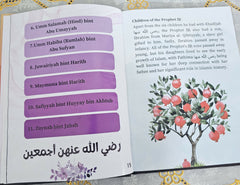 6. Umm Salamah (Hind) bint
Abu Umayyah
7. Umm Habiba (Ramlah) bint
Abu Sufyan
8. Juwairiyah bint Harith
9. Maymuna bint Harith
10. Safiyyah bint Huyyay bin Akhtab
11. Zaynab bint Jahsh
رضي الله عنهن أجمعين
15
Children of the Prophet ﷺ
Apart from the six children he had with Khadijah
, the Prophet ﷺ had one
, Ibrahim
from Mariya al-Qibtiyyah, a slave girl
gifted to him. Sadly, Ibrahim passed away in
infancy. All of the Prophet's ﷺ sons passed away
young, but his daughters lived to see the early
growth of Islam, with Fatimah
well known for her deep connection with her
father and her significant role in Islamic history.